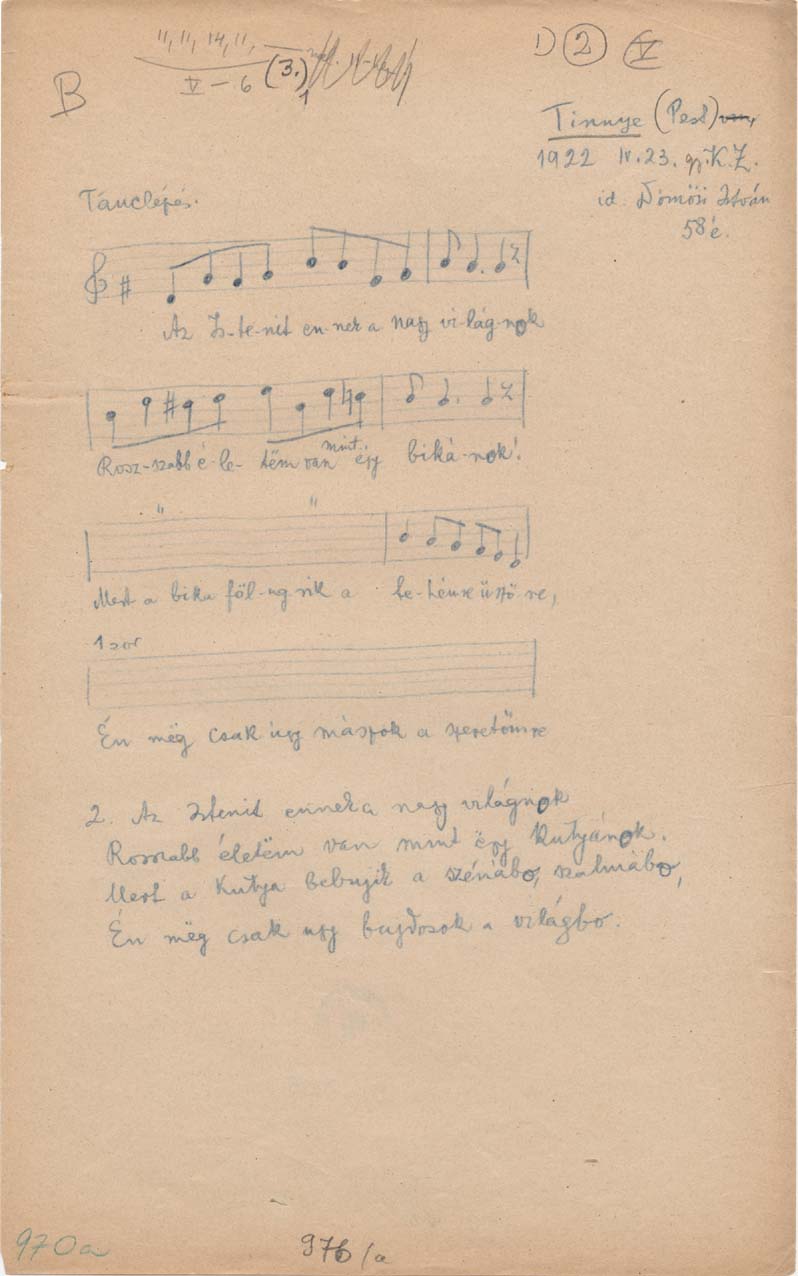 11, 11, 14, 11,
V – 6 (3.)
1
B
1) 2 V
Tinnye (Pest)
1922 IV. 23. gy. K. Z.
id. Dömősi István
58 é.
Tánclépés.
Az Is-te-nit en-nek a nagy vi-lág-nok
Rosz-szabb é-le-tëm van mint ëgy biká-nok!
" "
Mert a bika föl-ug-rik a te-hénre üsző-re,
1 szor
Én mëg csak úgy mászok a szeretőmre
2. Az Istenit ennek a nagy világnok
Rosszabb életëm van mint ëgy kutyánok.
Mert a kutya bebujik a szénábo, szalmábo,
Én mëg csak ugy bujdosok a világbo.
970a
976/a